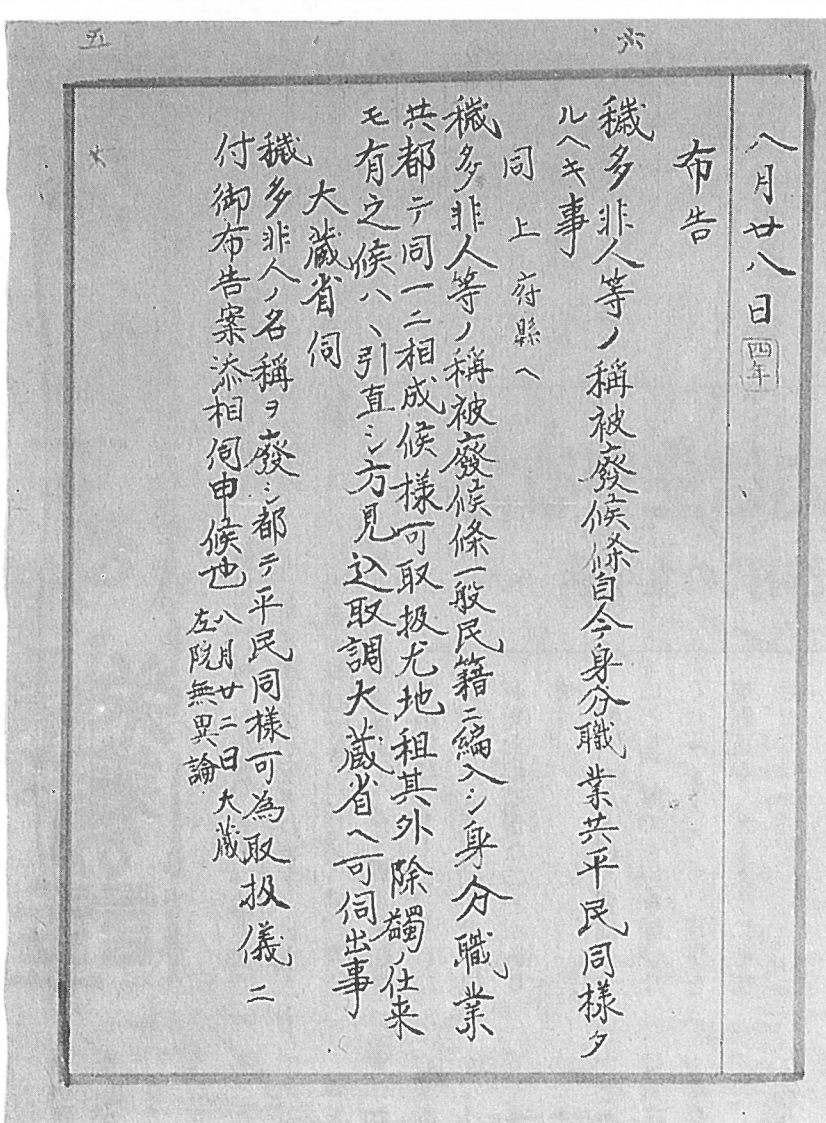 六
五
八月廿八日 四年
布告
穢多非人等ノ稱被廢候條自今身分職業共平民同様タ
ルヘキ事
同上 府縣ヘ
穢多非人等ノ稱被廢候條一般民籍ニ編入シ身分職業
共都テ同一ニ相成候様可取扱尤地租其外除蠲ノ仕来
モ有之候ハヽ引直シ方見込取調大蔵省ヘ可伺出事
大蔵省伺
穢多非人ノ名稱ヲ廢シ都テ平民同様可為取扱儀ニ
付御布告案添相伺申候也 八月廿二日 大蔵
左院無異論